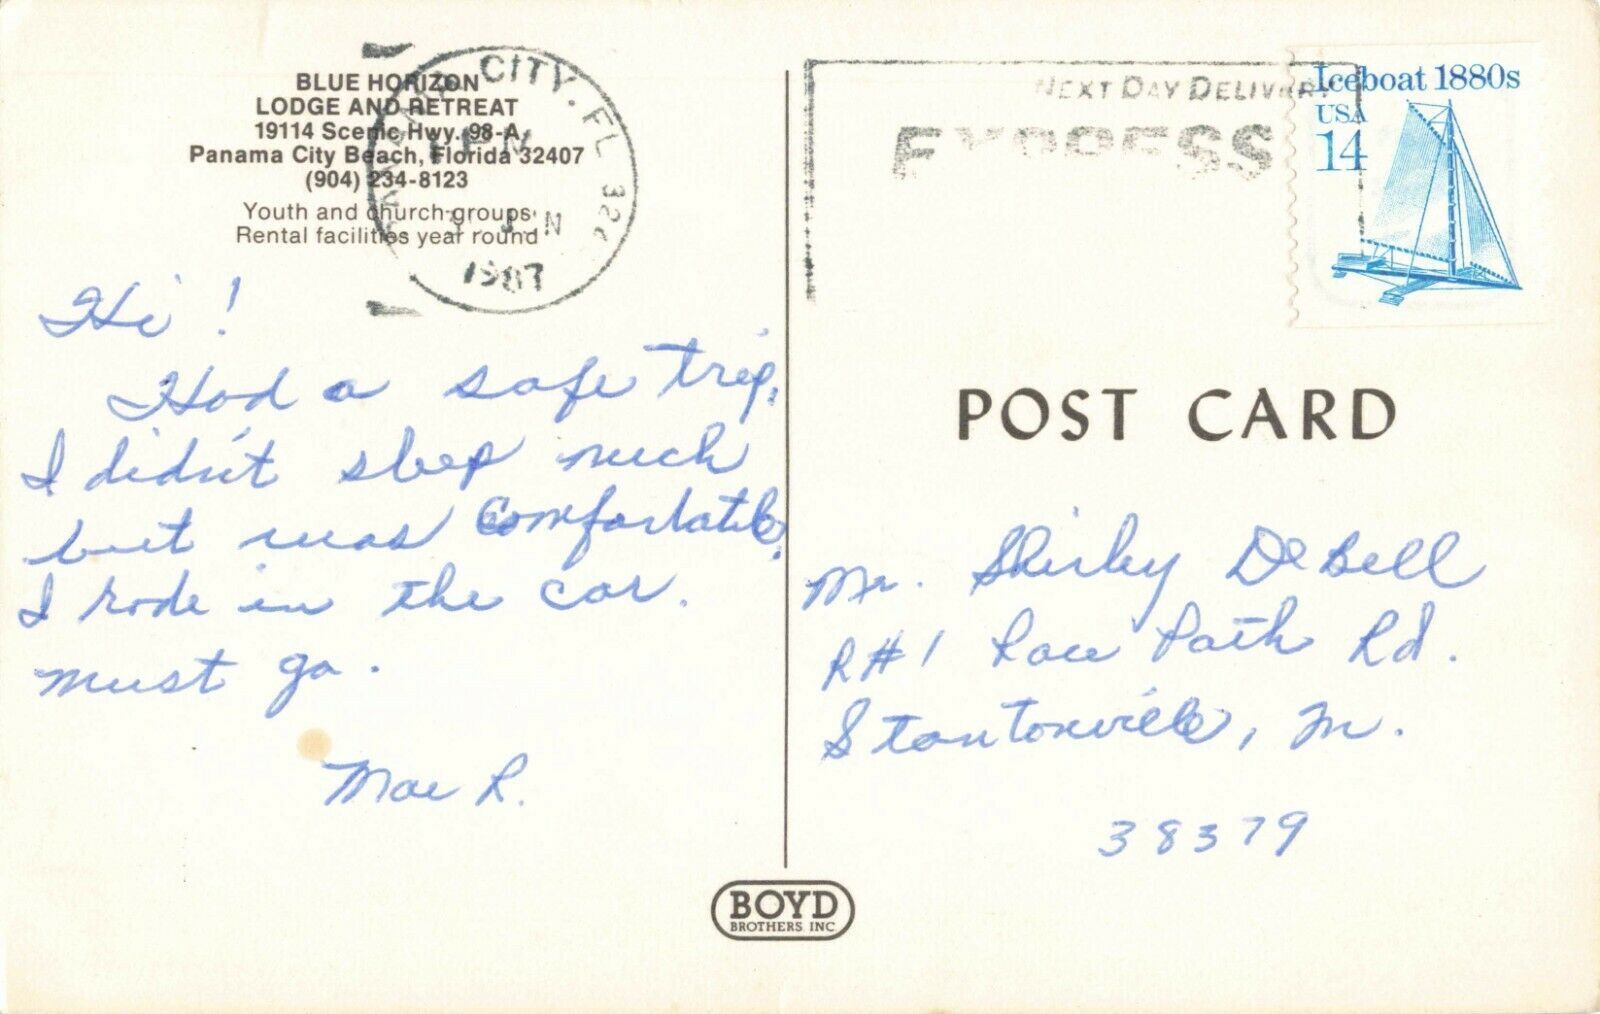 BLUE HORIZON
LODGE AND RETREAT
19114 Scenic Hwy. 98-A,
Panama City Beach, Florida 32407
(904) 234-8123
Youth and church groups
Rental facilities year round
CITY, FL
PM
1987
NEXT DAY DELIVERY
EXPRESS
Iceboat 1880s
USA
14
Hi!
Had a safe trip.
I didn't sleep much
but was comfortable.
I rode in the car.
must go.
Mae R.
POST CARD
Mr. Shirley DeBell
R#1 Race Path Rd.
Stantonville, Tn.
38379
BOYD
BROTHERS INC